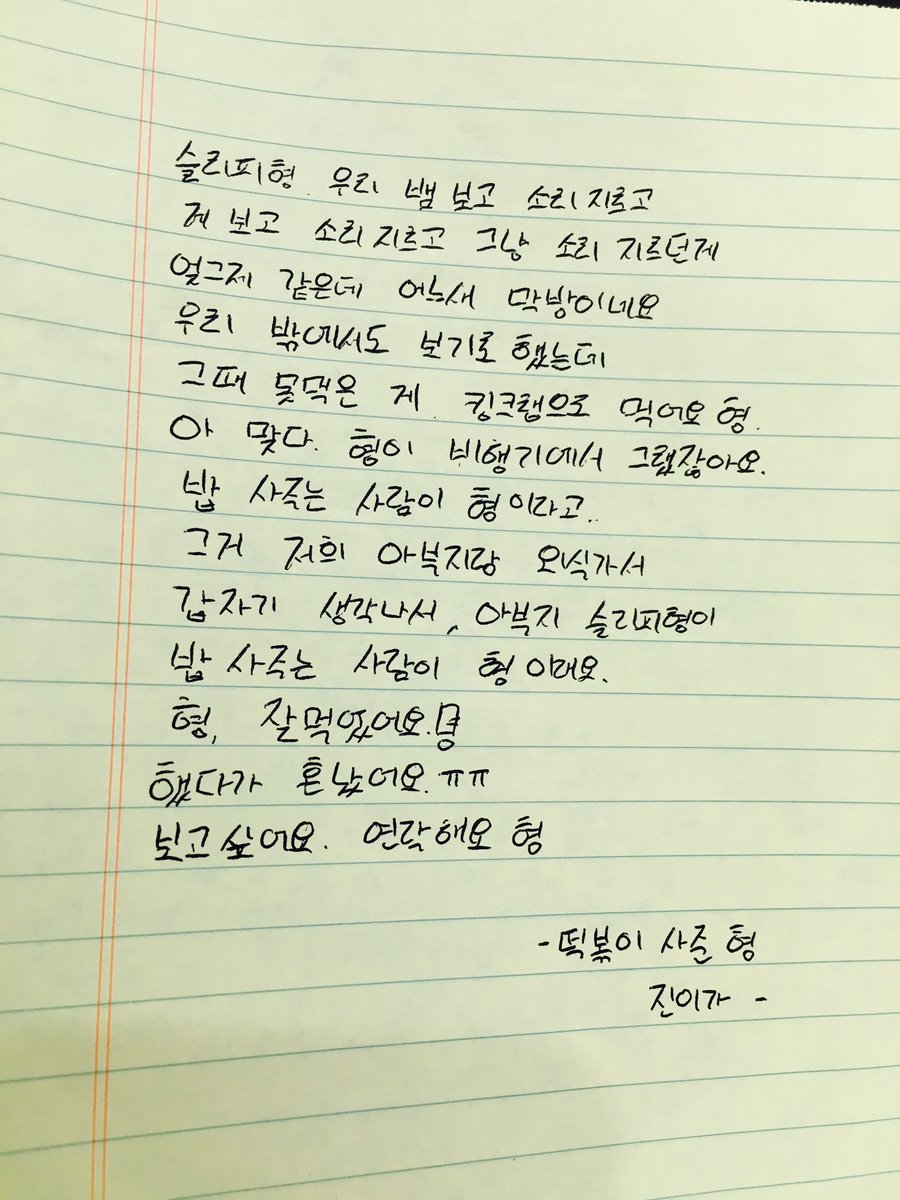 슬리피형 우리 뱀 보고 소리 지르고
게 보고 소리 지르고 그냥 소리 지르던게
엊그제 같은데 어느새 막방이네요
우리 밖에서도 보기로 했는데
그때 못먹은 게 킹크랩으로 먹어요 형.
아 맞다. 형이 비행기에서 그랬잖아요.
밥 사주는 사람이 형이라고..
그거 저희 아부지랑 외식가서
갑자기 생각나서, 아부지 슬리피형이
밥 사주는 사람이 형 이래요.
형, 잘먹었어요.
했다가 혼났어요.ㅠㅠ
보고싶어요. 연락해요 형
-떡볶이 사준 형
진이가 -